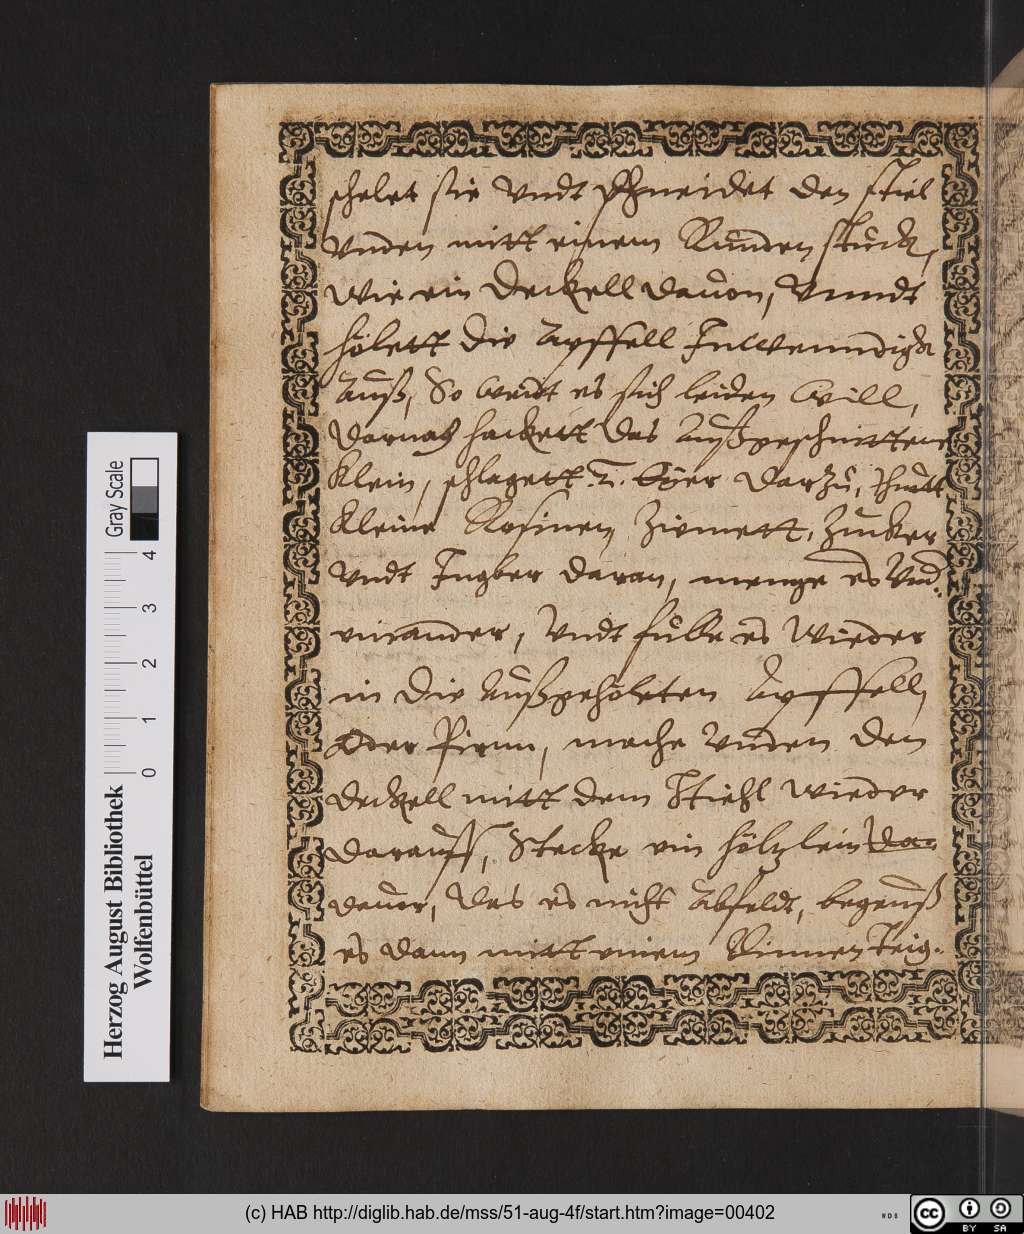 schelet sie Vndt schneidet den stiel
Vnden mitt einem Runden stück,
Wie ein Deckell dauon, Vnndt
hölett die Apffell Inwenndigk
Auß, So weidt es sich leiden will,
darnach hackett das Außgeschnittene
Klein, schlagett .2. Eyer darzu, thutt
Kleine Rosinen Zimmett, Zucker
Vndt Ingber daran, menge es Vnd.
einander, Vndt fülle es Wieder
in die Außgehöleten Apffell,
Oder Pirnn, mache Vnden den
deckell mitt dem Stiehl wieder
darauff, Stecke ein höltzlein da-
deuer, das es nicht Abfeldt, begeuß
es dann mitt einem Dinnen teig.
Gray Scale
0 1 2 3 4
Herzog August Bibliothek
Wolfenbüttel
(c) HAB http://diglib.hab.de/mss/51-aug-4f/start.htm?image=00402
WDB
cc BY SA